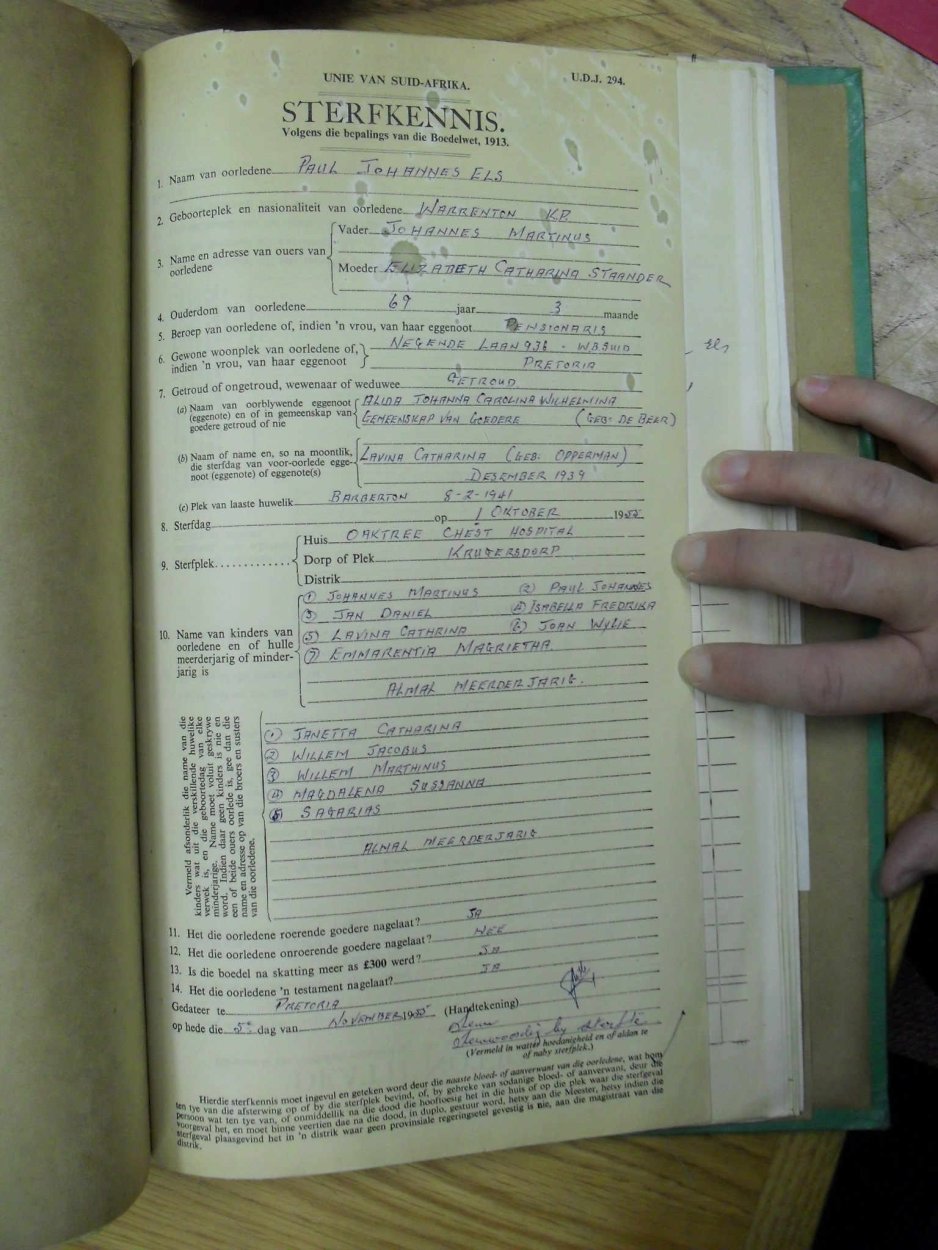 UNIE VAN SUID-AFRIKA.
U.D.J. 294.
STERFKENNIS.
Volgens die bepalings van die Boedelwet, 1913.
1. Naam van oorledene PAUL JOHANNES ELS
2. Geboorteplek en nasionaliteit van oorledene WARRENTON KP.
3. Name en adresse van ouers van oorledene
Vader JOHANNES MARTINUS
Moeder ELIZABETH CATHARINA STAANDER
4. Ouderdom van oorledene 69 jaar 3 maande
5. Beroep van oorledene of, indien 'n vrou, van haar eggenoot PENSIONARIS
6. Gewone woonplek van oorledene of, NEGENDE LAAN 936 - WBSUID
indien 'n vrou, van haar eggenoot PRETORIA
Els
7. Getroud of ongetroud, wewenaar of weduwee GETROUD
(a) Naam van oorblywende eggenoot ALIDA JOHANNA CAROLINA WILHELMINA
(eggenote) en of in gemeenskap van GEMEENSKAP VAN GOEDERE (GEB: DE BEER)
goedere getroud of nie
(b) Naam of name en, so na moontlik, LAVINA CATHARINA (GEB: OPPERMAN)
die sterfdag van voor-oorlede egge- DESEMBER 1939
noot (eggenote) of eggenote(s)
(c) Plek van laaste huwelik BARBERTON 8-2-1941
8. Sterfdag op 1 OKTOBER 1955
9. Sterfplek
Huis OAKTREE CHEST HOSPITAL
Dorp of Plek KRUGERSDORP
Distrik
10. Name van kinders van oorledene en of hulle meerderjarig of minder-jarig is
(1) JOHANNES MARTINUS (2) PAUL JOHANNES
(3) JAN DANIEL (4) ISABELLA FREDRIKA
(5) LAVINA CATHRINA (6) JOAN WYLIE
(7) EMMARENTIA MAGRIETHA
ALMAL MEERDERJARIG.
Vermeld afsonderlik die name van die
kinders wat uit die verskillende huwelike
verwek is, en die geboortedag van elke
minderjarige. Name moet voluit geskrywe
word. Indien daar geen kinders is nie en
een of beide ouers oorlede is, gee dan die
name en adresse op van die broers en susters
van die oorledene.
(1) JANETTA CATHARINA
(2) WILLEM JACOBUS
(3) WILLEM MARTHINUS
(4) MAGDALENA SUSSANNA
(5) SAGARIAS
ALMAL MEERDERJARIG
11. Het die oorledene roerende goedere nagelaat? JA
12. Het die oorledene onroerende goedere nagelaat? NEE
13. Is die boedel na skatting meer as £300 werd? JA
14. Het die oorledene 'n testament nagelaat? JA
Gedateer te PRETORIA
(Handtekening)
op hede die 5e dag van NOVEMBER 1955
by sterfte
(Vermeld in watter hoedanigheid en of aldan te
of naby sterfplek.)
Hierdie sterfkennis moet ingevul en geteken word deur die naaste bloed- of aanverwant van die oorledene, wat hom
ten tye van die afsterwing op of by die sterfplek bevind, of, by gebreke van sodanige bloed- of aanverwant, deur die
persoon wat ten tye van, of onmiddellik na die dood die hooftoesig het in die huis of op die plek waar die sterfgeval
voorgeval het, en moet binne veertien dae na die dood, in duplo, gestuur word, hetsy aan die Meester, hetsy indien die
sterfgeval plaasgevind het in 'n distrik waar geen provinsiale regeringsetel gevestig is nie, aan die magistraat van die
distrik.